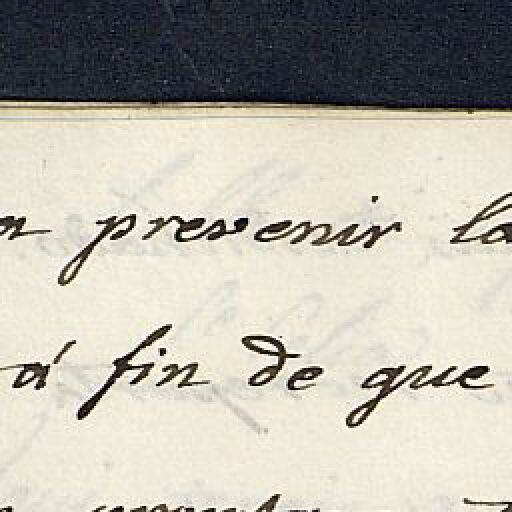 prevenir la
á fin de que